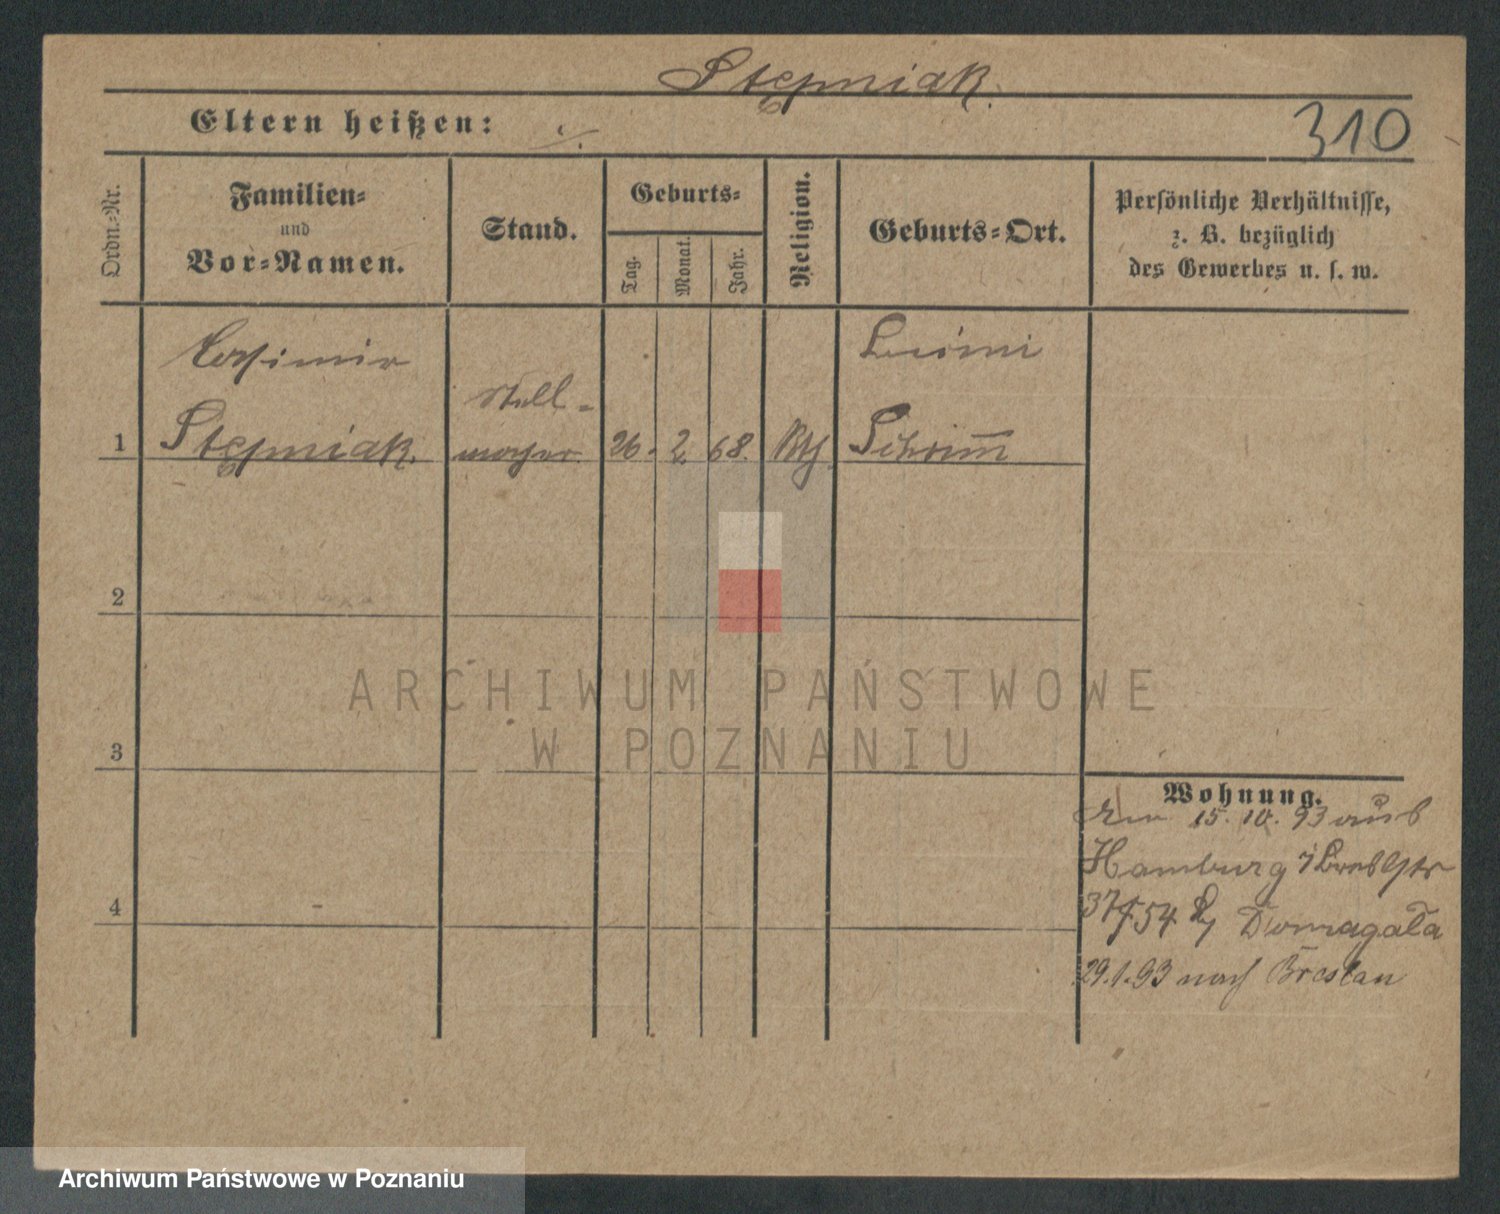 Stępniak.
Eltern heißen: ./.
310
Ordn.-Nr.
Familien-
und
Vor-Namen.
Stand.
Geburts-
Tag.
Monat.
Jahr.
Religion.
Geburts-Ort.
Persönliche Verhältnisse,
z. B. bezüglich
des Gewerbes u. s. w.
Casimir
Stell-
1 Stępniak. macher 26. 2. 68. Kth. Schrimm
2
3
4
Wohnung.
15. 10. 93 aus
Hamburg
Domagała
29.1.93 nach Breslau
ARCHIWUM PAŃSTWOWE
W POZNANIU
Archiwum Państwowe w Poznaniu